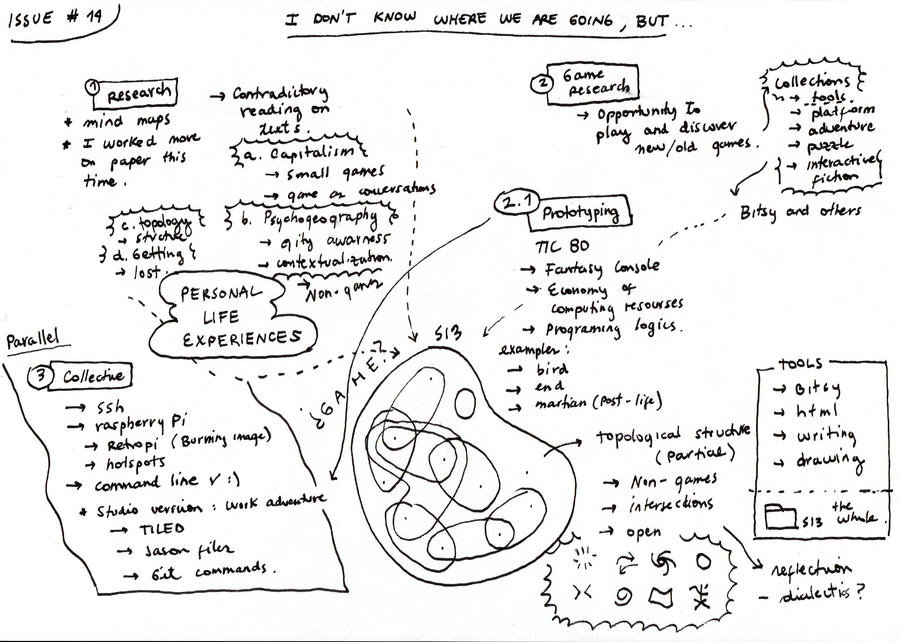 ISSUE # 19
I DON'T KNOW WHERE WE ARE GOING, BUT ...
1 Research
* mind maps
* I worked more
on paper this
time.
→ Contradictory
reading on
texts.
a. Capitalism
→ small games
→ game as conversations
b. Psychogeography
→ city awarness
→ contextualization.
→ Non-games
c. topology
→ structure
d. Getting
→ lost.
PERSONAL
LIFE
EXPERIENCES
2 Game
Research
→ Opportunity to
play and discover
new/old games.
Collections
→ tools.
→ platform
→ adventure
→ puzzle
→ interactively
fiction
Bitsy and others
2.1 Prototyping
TIC 80
→ Fantasy Console
→ Economy of
computing resourses
→ Programing logics.
examples:
→ bird
→ end
→ martian (Post-life)
Parallel
3 Collective
→ ssh
→ raspberry Pi
→ Retropi (Burning image)
→ hotspots
→ command line v :)
* Studio version: work adventure
→ TILED
→ Jason files
→ Git commands.
¿GAME?
S13
→ topological structure
(Partial)
→ Non-games
→ intersections
→ open
→ reflection
- dialectis?
TOOLS
→ Bitsy
→ html
→ writing
→ drawing
S13 the whole.